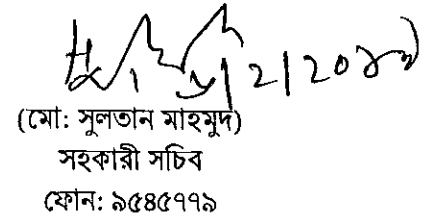 (মো: সুলতান মাহমুদ)
সহকারী সচিব
ফোন: ৯৫৪৫৭৭৯